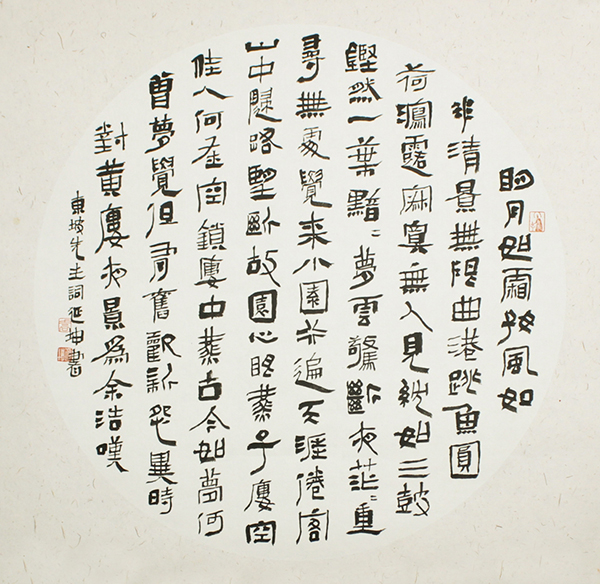 明月如霜好風如
水清景無限曲港跳魚圓
荷瀉露寂寞無人見紞如三鼓
鏗然一葉黯〻夢雲驚斷夜茫〻重
尋無處覺來小園行遍天涯倦客
山中歸路望斷故園心眼燕子樓空
佳人何在空鎖樓中燕古今如夢何
曾夢覺但有舊歡新怨異時
對黃樓夜景爲余浩嘆
東坡先生詞延坤書